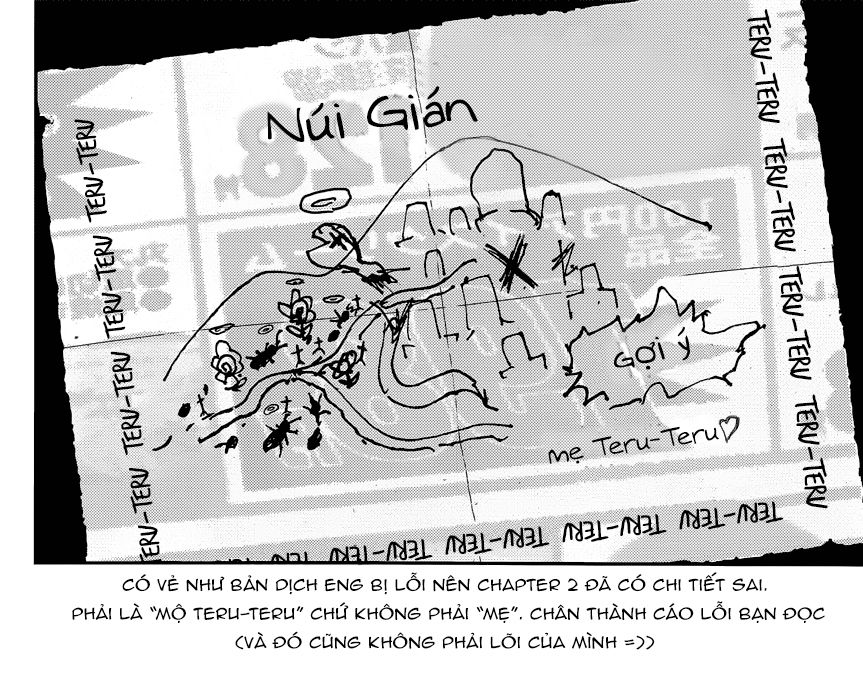 Núi Gián
TERU-TERU TERU-TERU TERU-TERU TERU-TERU TERU-TERU
TERU-TERU TERU-TERU TERU-TERU TERU-TERU TERU-TERU
128
100円
全品
Gợi ý
mẹ Teru-Teru♡
TERU TERU-TERU TERU-TERU TERU-TERU TERU-TERU
CÓ VẺ NHƯ BẢN DỊCH ENG BỊ LỖI NÊN CHAPTER 2 ĐÃ CÓ CHI TIẾT SAI.
PHẢI LÀ "MỘ TERU-TERU" CHỨ KHÔNG PHẢI "MẸ". CHÂN THÀNH CÁO LỖI BẠN ĐỌC
(VÀ ĐÓ CŨNG KHÔNG PHẢI LÕI CỦA MÌNH =))